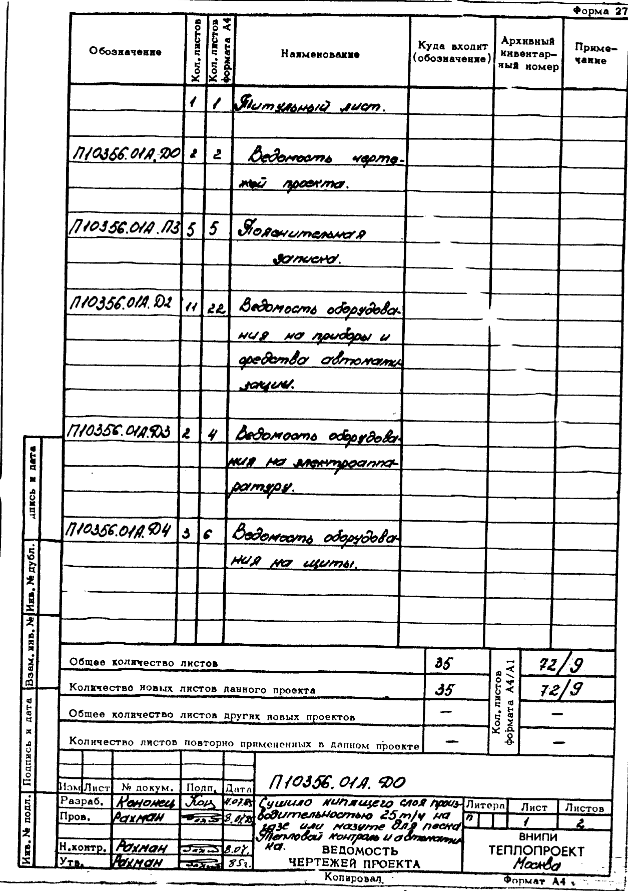 Форма 27
Обозначение Кол. листов Кол. листов формата А4 Наименование Куда входит (обозначение) Архивный инвентар- ный номер Приме- чание
1 1 Титульный лист.
П10356.01А.Д0 2 2 Ведомость черте-
жей проекта.
П10356.01А.ПЗ 5 5 Пояснительная
записка.
П10356.01А.Д2 11 22 Ведомость оборудова-
ния на приборы и
средства автомати-
зации.
П10356.01А.Д3 2 4 Ведомость оборудова-
ния на электроаппа-
ратуру.
П10356.01А.Д4 3 6 Ведомость оборудова-
ния на щиты.
Общее количество листов 35 72/9
Количество новых листов данного проекта 35 72/9
Общее количество листов других новых проектов — —
Количество листов повторно примененных в данном проекте — —
Кол. листов формата А4/А1
дпись и дата
Инв. № дубл.
Взам. инв. №
Подпись и дата
Инв. № подл.
П10356.01А.Д0
Изм Лист № докум. Подп. Дата
Разраб. Кононец
Пров. Рахман
Н.контр. Рахман
Утв. Рахман 85г.
Сушило кипящего слоя произ-
водительностью 25 т/ч на
газе или мазуте для песка
Тепловой контроль и автомати-
ка.
ВЕДОМОСТЬ
ЧЕРТЕЖЕЙ ПРОЕКТА
Литера Лист Листов
П 1 2
ВНИПИ
ТЕПЛОПРОЕКТ
Москва
Копировал Формат А4